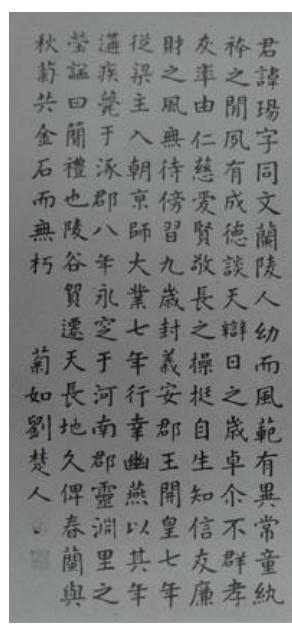 君諱瑒字同文蘭陵人幼而風範有異常童紈
袴之閒夙有成德談天辯日之歲卓尒不群孝
友率由仁慈愛賢敬長之操挺自生知信友廉
財之風無待傍習九歲封義安郡王開皇七年
從梁主入朝京師大業七年行幸幽燕以其年
遘疾薨于涿郡八年永窆于河南郡靈淵里之
塋謚曰簡禮也陵谷貿遷天長地久俾春蘭與
秋菊共金石而無朽
菊如劉楚人